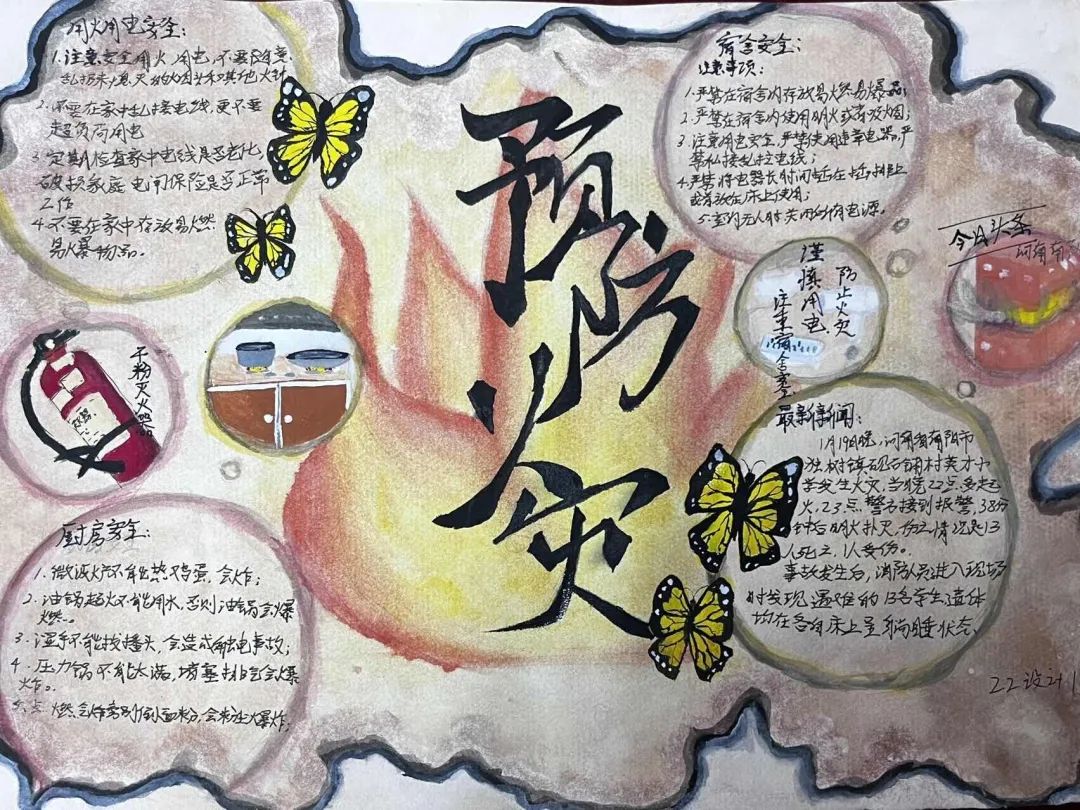 用火用电安全：
1.注意安全用火、用电，不要随意
乱扔未熄灭的烟花和其他火种
2.不要在家中乱接电线，更不要
超负荷用电
3.定期检查家中电线是否老化，
破损家庭电闸保险是否正常
工作
4.不要在家中存放易燃
易爆物品。
预防火灾
宿舍安全：
注意事项：
1.严禁在宿舍内存放易燃易爆品；
2.严禁在宿舍内使用明火或存放烟；
3.注意用电安全，严禁使用违章电器，严
禁私接乱拉电线；
4.严禁将电器长时间插在插排上
或存放在床上使用；
5.室内无人时关闭所有电源。
今日头条
河南南
谨慎用电
防止火灾
注重宿舍安全
干粉灭火器
最新新闻：
1月19日晚，河南省南阳市
独树镇砚石铺村英才小
学发生火灾，当晚22点
火，23点警方接到报警，38分
钟后明火扑灭，伤亡情况是13
人死亡，1人受伤。
事故发生后，消防员进入现场
时发现遇难的13名学生遗体
均在各自床上呈躺睡状态。
厨房安全：
1.微波炉不能热鸡蛋，会炸；
2.油锅起火不能用水，否则油锅会爆
燃。
3.湿手不能拔插头，会造成触电事故；
4.压力锅不能太满，堵塞排气会爆
炸。
燃气灶旁别倒面粉，会发生爆炸。
22设计1